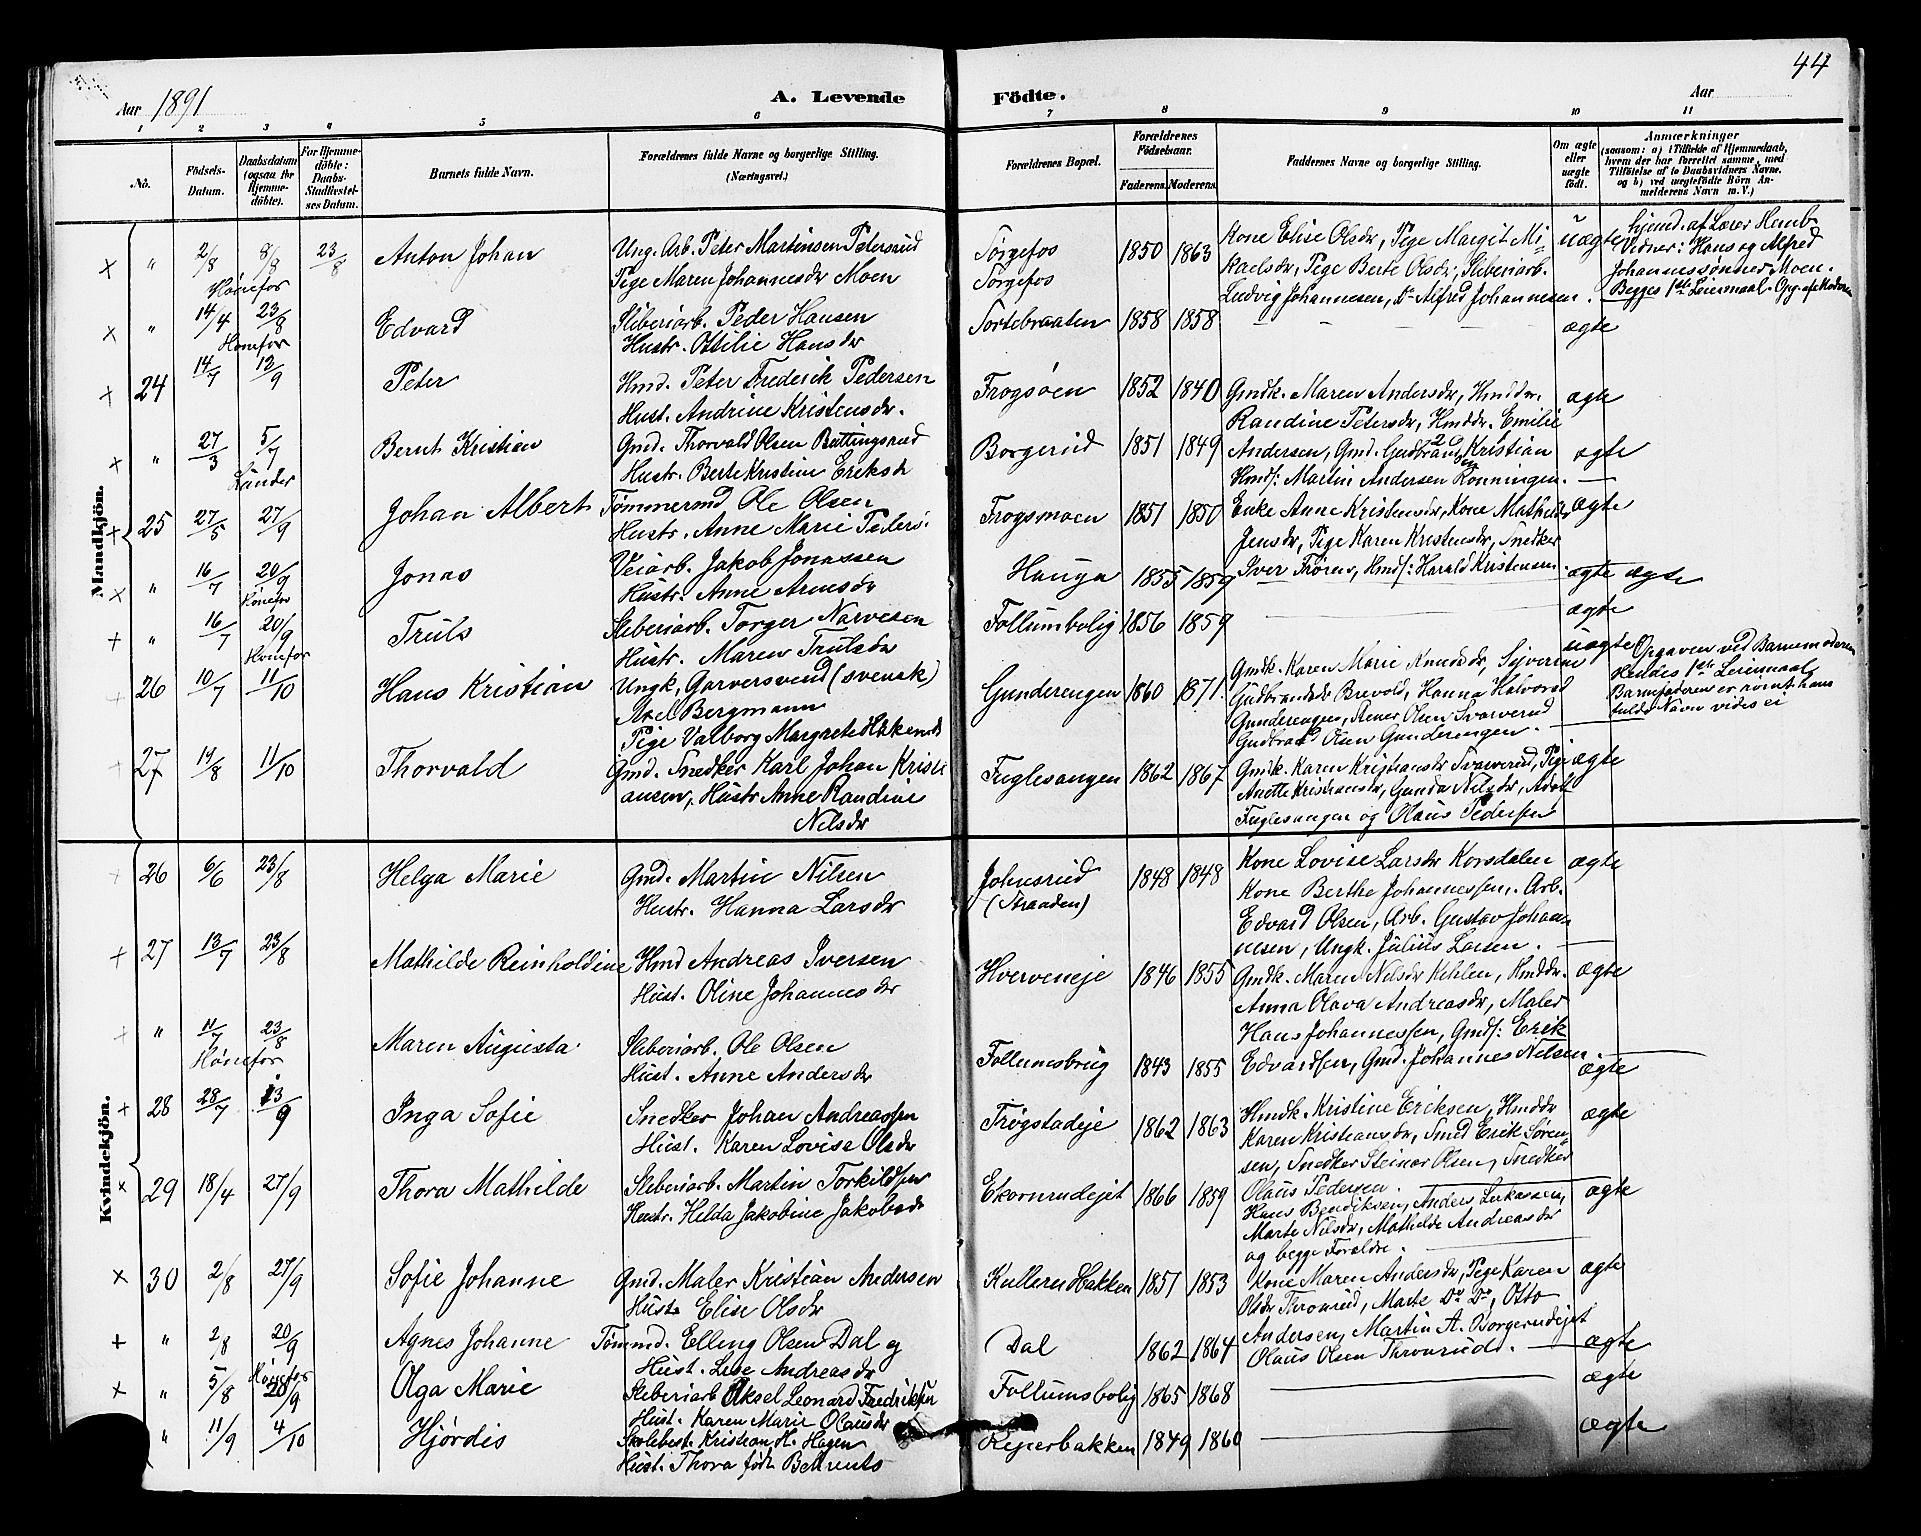 44
Aar 1891
A. Levende Födte.
Aar
1 2 3 4 5 6 7 8 9 10 11
No.
Födsels-Datum.
Daabsdatum (ogsaa for Hjemme-döbte).
For Hjemme-döbte: Daabs-Stadfæstel-ses Datum.
Barnets fulde Navn.
Forældrenes fulde Navne og borgerlige Stilling.
(Næringsvei.)
Forældrenes Bopæl.
Forældrenes Födselsaar.
Faderens. Moderens.
Faddernes Navne og borgerlige Stilling.
Om ægte eller uægte födt.
Anmærkninger
(saasom: a) i Tilfælde af Hjemmedaab, hvem der har forrettet samme, med Tilföielse af to Daabsvidners Navne, og b) ved uægtefödte Börn Anmelderens Navn m. V.)
Mandkjön.
" 2/8 8/8 23/8 Anton Johan
Hønefos
Ung. Arb. Peter Martinsen Petersrud
Pige Maren Johannesdr Moen
Tørgefos
Tørgefos
1850 1863
Kone Elise Olsdr, Pige Margit Mi-
kaelsdr, Pige Berte Olsdr, Sliberiarb.
Ludvig Johannesen, Do Alfred Johannesen.
uægte
hjemd. af Lærer Hemb
Vidner: Hans og Alfred
Johannessønner Moen.
Begges 1ste Leiermaal. Opg. af Moderen
" 14/4 23/8 Edvard
Hønefos
Sliberiarb. Peder Hansen
Hustr. Ottilie Hansdr
Tortebraaten 1858 1858 ægte
24 14/7 13/9 Peter
Hmd. Peter Frederik Pedersen
Hust. Andrine Kristensdr.
Frogsøen 1852 1840
Gmdk. Maren Andersdr, Hmddr.
Randine Petersdr, Hmddr. Emilie
Andersen, Gmd. Gudbrand Kristian
Hmds: Martin Andersen Rønningen.
ægte
" 27/3 5/7 Bernt Kristian
Lunder
Gmd. Thorvald Olsen Buttingsrud
Hustr. Berte Kristine Eriksdr
Borgerud 1851 1849 ægte
25 27/5 27/9 Johan Albert
Tømmermd Ole Olsen
Hustr. Anne Marie Peders.
Frogsmoen 1851 1850
Enke Anne Kristensdr, Kone Mathilde
Jensdr, Pige Karen Kristensdr, Snedker
Iver Frøren, Hmds: Harald Kristensen.
ægte
" 16/7 20/9 Jonas
Hønefos
Veiarb. Jakob Jonassen
Hustr. Anne Arnesdr
Hauga 1855 1859 ægte ægte
" 16/7 20/9 Truls
Hønefos
Sliberiarb. Torger Narvesen
Hustr. Maren Trulsdr
Follumbolig 1856 1859 ægte
26 10/7 11/10 Hans Kristian
Ungk, Garversvend (svensk)
Axel Bergmann
Pige Valborg Margrete Håkensdr
Gunderengen 1860 1871.
Gmdk. Karen Marie Knudsdr, Syverine
Gudbrandsdr Brevold, Hanna Halvorsd
Gunderengen, Stener Olsen Svarverud
Gudbrand Olsen Gunderengen.
uægte
Opgaven ved Barnemoderen
Hendes 1ste Leiermaal
Barnefaderen er rømt hans
fulde Navn vides ei
27 19/8 11/10 Thorvald
Gmd. Snedker Karl Johan Kristi
ansen, Hustr Anne Randine
Nilsdr
Fuglesangen 1862 1867
Gmdk. Karen Kristiansdr Svarverud, Pige
Anette Kristiansdr, Gunda Nilsdr, Adolf
Fuglesangen og Olaus Pedersen
ægte
Kvindekjön.
26 6/6 23/8 Helga Marie
Gmd. Martin Nilsen
Hustr. Hanna Larsdr
Johnsrud
(Straaden)
1848 1848
Kone Lovise Larsdr Korsdalen
Kone Berthe Johannessen, Arb.
Edvard Olsen, Arb. Gustav Johan-
nesen, Ungk. Julius Larsen.
ægte
27 13/7 23/8 Mathilde Reinholdine
Hmd Andreas Iversen
Hust. Oline Johannesdr
Hverveneje 1846 1855
Gmdk. Maren Nilsdr Kihlen, Hmddr.
Anna Olava Andreasdr, Maler
Hans Johannessen, Gmds: Erik
Edvardsen, Gmd. Johannes Nilsen.
ægte
" 11/7 23/8 Maren Augusta
Hønefos
Sliberiarb. Ole Olsen
Hust. Anne Andersdr
Follumsbrug 1843 1855 ægte
28 28/7 13/9 Inga Sofie
Snedker Johan Andreassen
Hust. Karen Lovise Olsdr
Trøgstadeje 1862 1863
Hmdk. Kristine Eriksen, Hmddr
Karen Kristiansdr, Smed Erik Søren-
sen, Snedker Steinar Olsen, Snedker
Olaus Pedersen.
ægte
29 18/4 27/9 Thora Mathilde
Sliberiarb. Martin Torkildsen
Hustr. Hilda Jakobine Jakobsdr
Ekornrudejet 1866 1859
Hans Bendiksen, Anders Lukassen,
Marte Nilsdr, Mathilde Andreasdr
og begge Forældre.
ægte
30 2/8 27/9 Sofie Johanne
Gmd. Maler Kristian Andersen
Hustr Elise Olsdr
Kullerudbakken 1851 1853
Kone Maren Andersdr, Pige Karen
Olsdr Throrud, Marte Do Do, Otto
Andersen, Martin A. Borgerudejet
Olaus Olsen Throrud.
ægte
" 2/8 20/9 Agnes Johanne
Hønefos
Tømmd. Elling Olsen Dal ej
Hust. Lise Andreasdr
Dal 1862 1864 ægte
" 5/8 20/9 Olga Marie
Sliberiarb Aksel Leonard Fredriksen
Hust. Karen Marie Olausdr
Follumsbolig 1865 1868 ægte
" 11/9 4/10 Hjørdis
Skolebest. Kristian H. Hagen
Hust. Thora født Behrents
Reperbakken 1849 1860 ægte